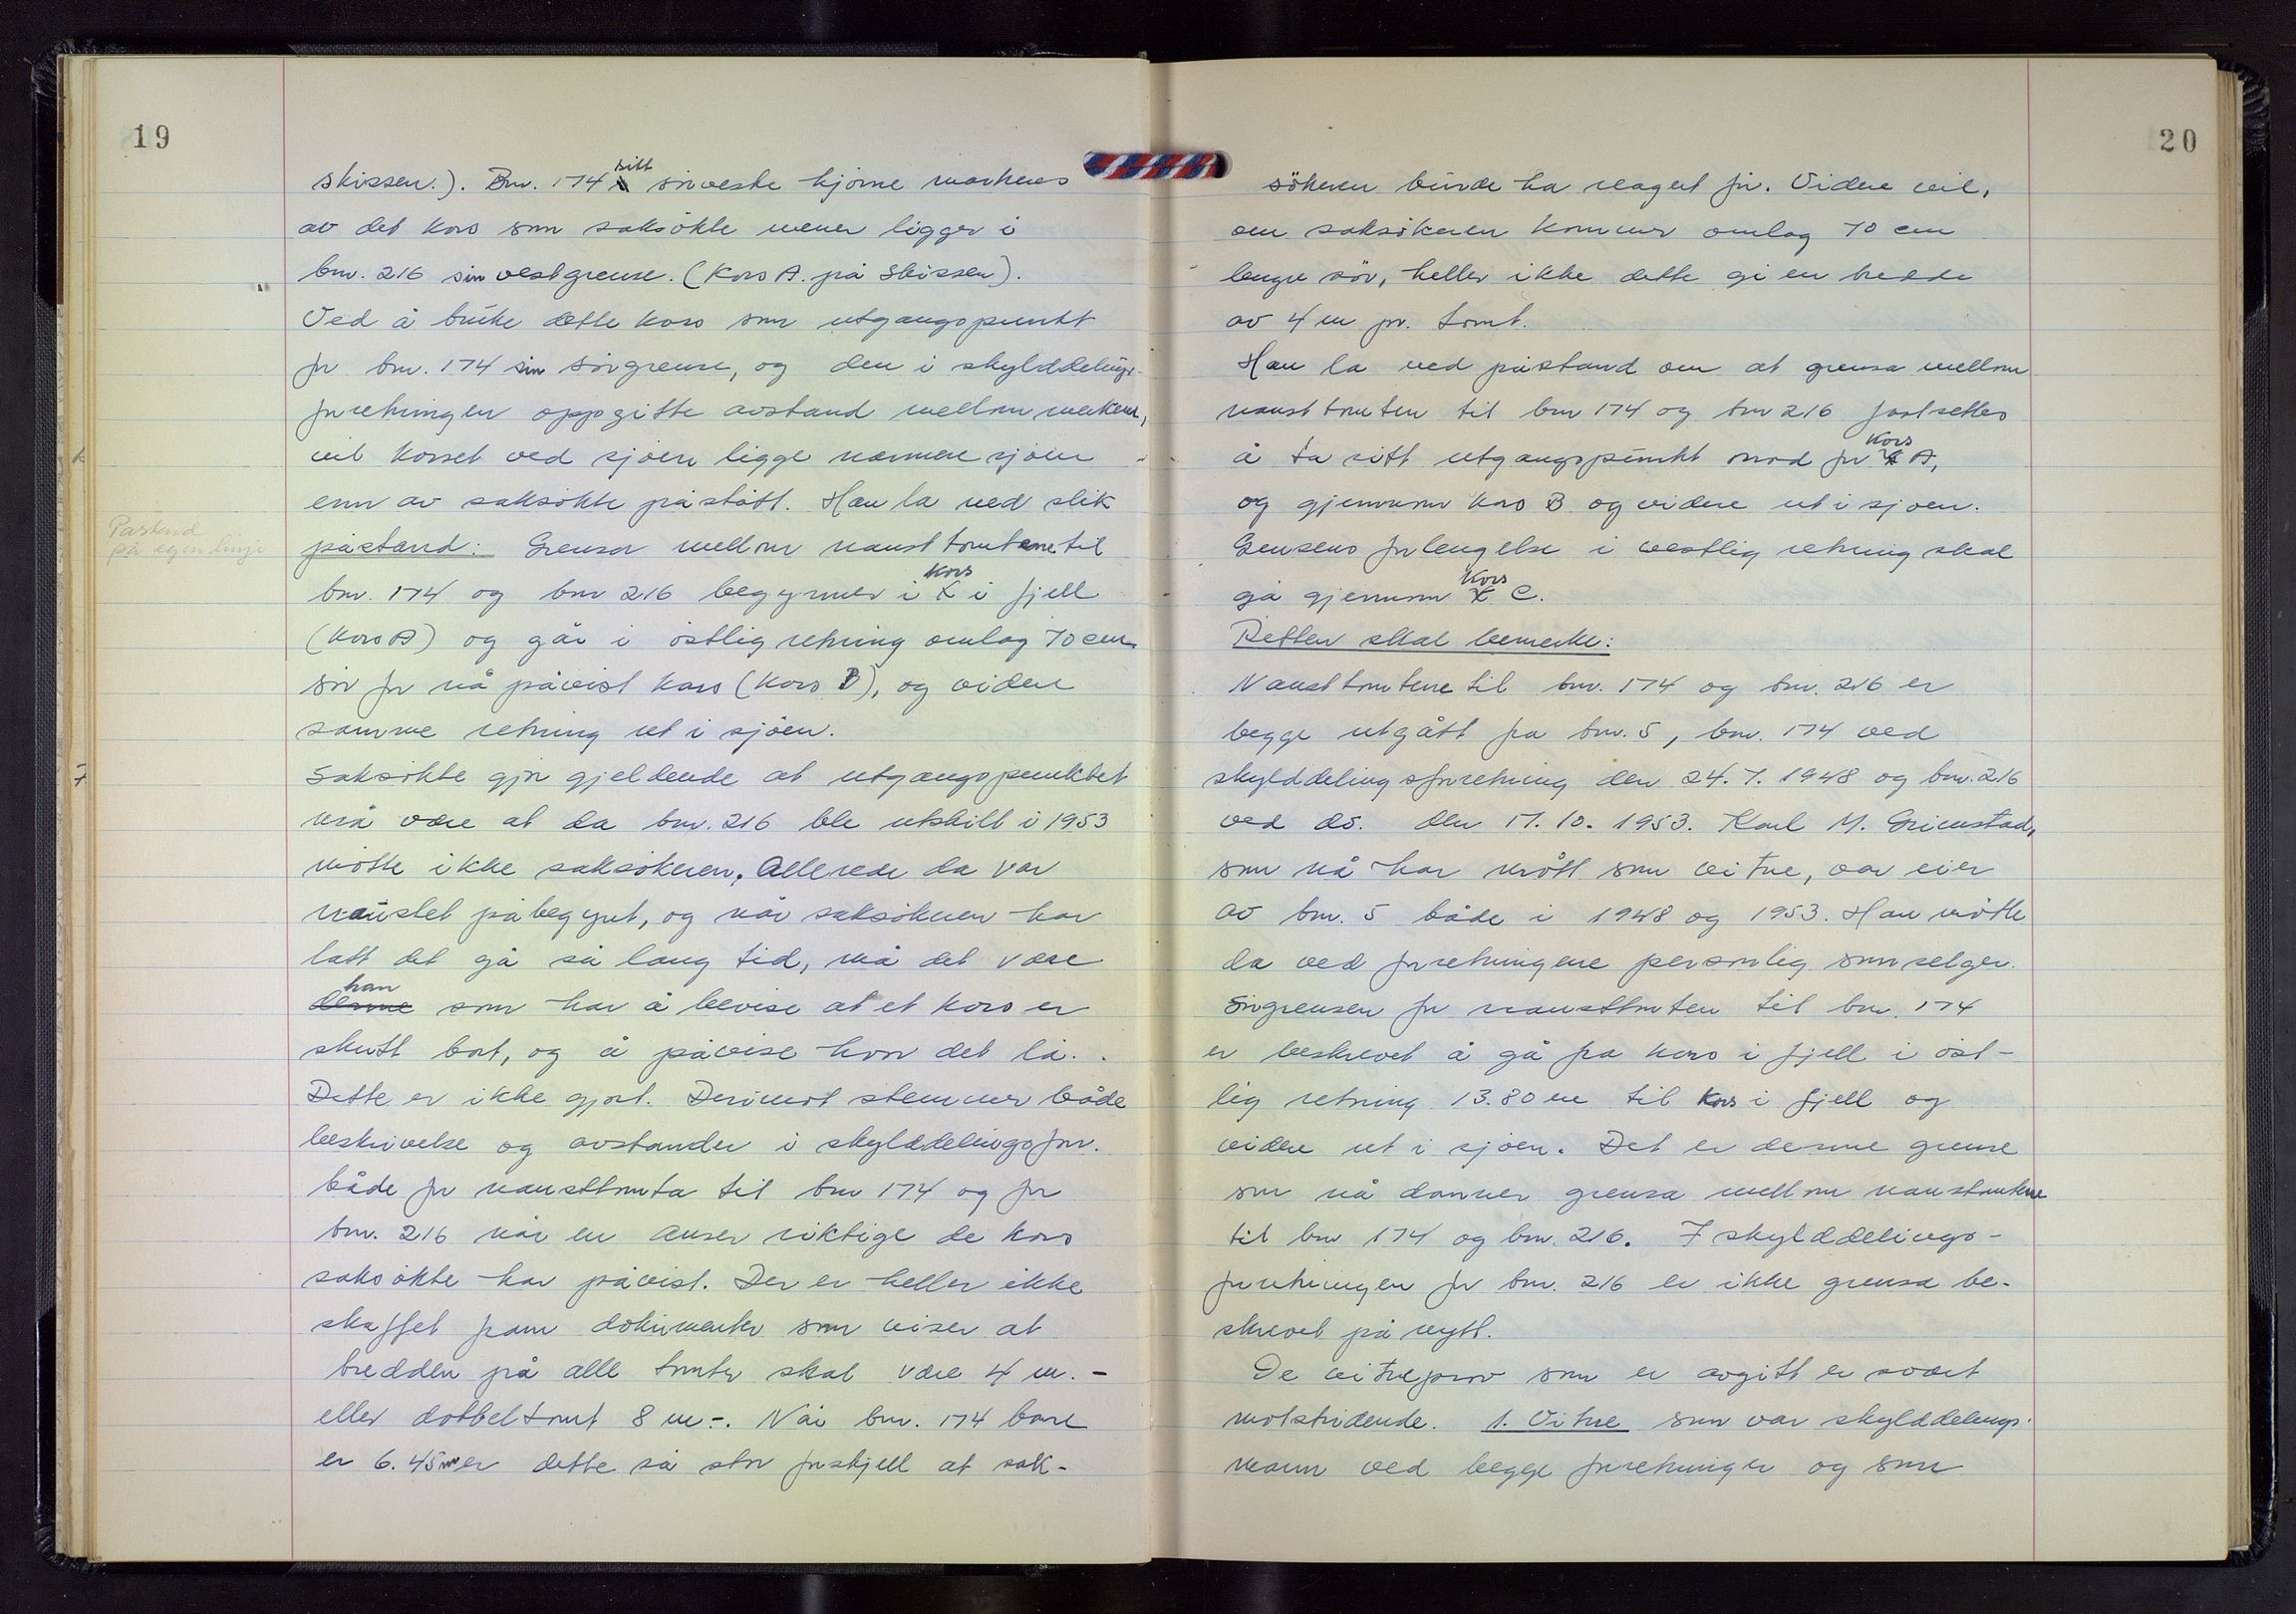 19
skissen.). Bnr. 174 sitt sörveste hjörne markeres
av det kors som saksökte mener ligger i
bnr. 216 sin vestgrense. (Kors A. på skissen).
Ved å bruke dette kors som utgangspunkt
for bnr. 174 sin sörgrense, og den i skylddelings-
forretningen oppgitte avstand mellom merkene,
vil korset ved sjöen ligge nærmere sjöen
enn av saksökte påstått. Han la ned slik
påstand: Grensa mellom nausttomtene til
bnr. 174 og bnr 216 begynner i kors i fjell
(Kors A) og går i östlig retning omlag 70 cm
sör for nå påvist kors (Kors B), og videre
samme retning ut i sjöen.
Saksökte gjör gjeldende at utgangspunktet
må være at da bnr. 216 ble utskilt i 1953
mötte ikke saksökeren. Allerede da var
naustet påbegynt, og når saksökeren har
latt det gå så lang tid, må det være
denne han som har å bevise at et kors er
skutt bort, og å påvise hvor det lå.
Dette er ikke gjort. Derimot stemmer både
beskrivelse og avstander i skylddelingsforr.
både for nausttomta til bnr 174 og for
bnr. 216 når en anser riktige de kors
saksökte har påvist. Der er heller ikke
skaffet fram dokumenter som viser at
bredden på alle tomter skal være 4 m. -
eller dobbeltomt 8 m -. Når bnr. 174 bare
er 6.45 m er dette så stor forskjell at sak-
Påstand
på egen linje
20
sökeren burde ha reagert för. Videre vil,
om saksökeren kommer omlag 70 cm
lengre sör, heller ikke dette gi en bredde
av 4 m pr. tomt.
Han la ned påstand om at grensa mellom
nausttomten til bnr 174 og bnr 216 fastsettes
å ta sitt utgangspunkt mod for kors A,
og gjennom kors B og videre ut i sjöen.
Grensens forlengelse i vestlig retning skal
gå gjennom kors C.
Retten skal bemerke:
Nausttomtene til bnr. 174 og bnr. 216 er
begge utgått fra bnr. 5, bnr. 174 ved
skylddelingsforretning den 24.7.1948 og bnr. 216
ved do. den 17.10.1953. Karl M. Grimstad,
som nå har mött som vitne, var eier
av bnr. 5 både i 1948 og 1953. Han mötte
da ved forretningene personlig som selger.
Sörgrensen for nausttomten til bnr. 174
er beskrevet å gå fra kors i fjell i öst-
lig retning 13.80 m til kors i fjell og
videre ut i sjöen. Det er denne grense
som nå danner grensa mellom nausttomtene
til bnr 174 og bnr. 216. I skylddelings-
forretningen for bnr. 216 er ikke grensa be-
skrevet på nytt.
De vitneprov som er avgitt er svært
motstridende. 1. Vitne som var skylddelings-
mann ved begge forretninger og som